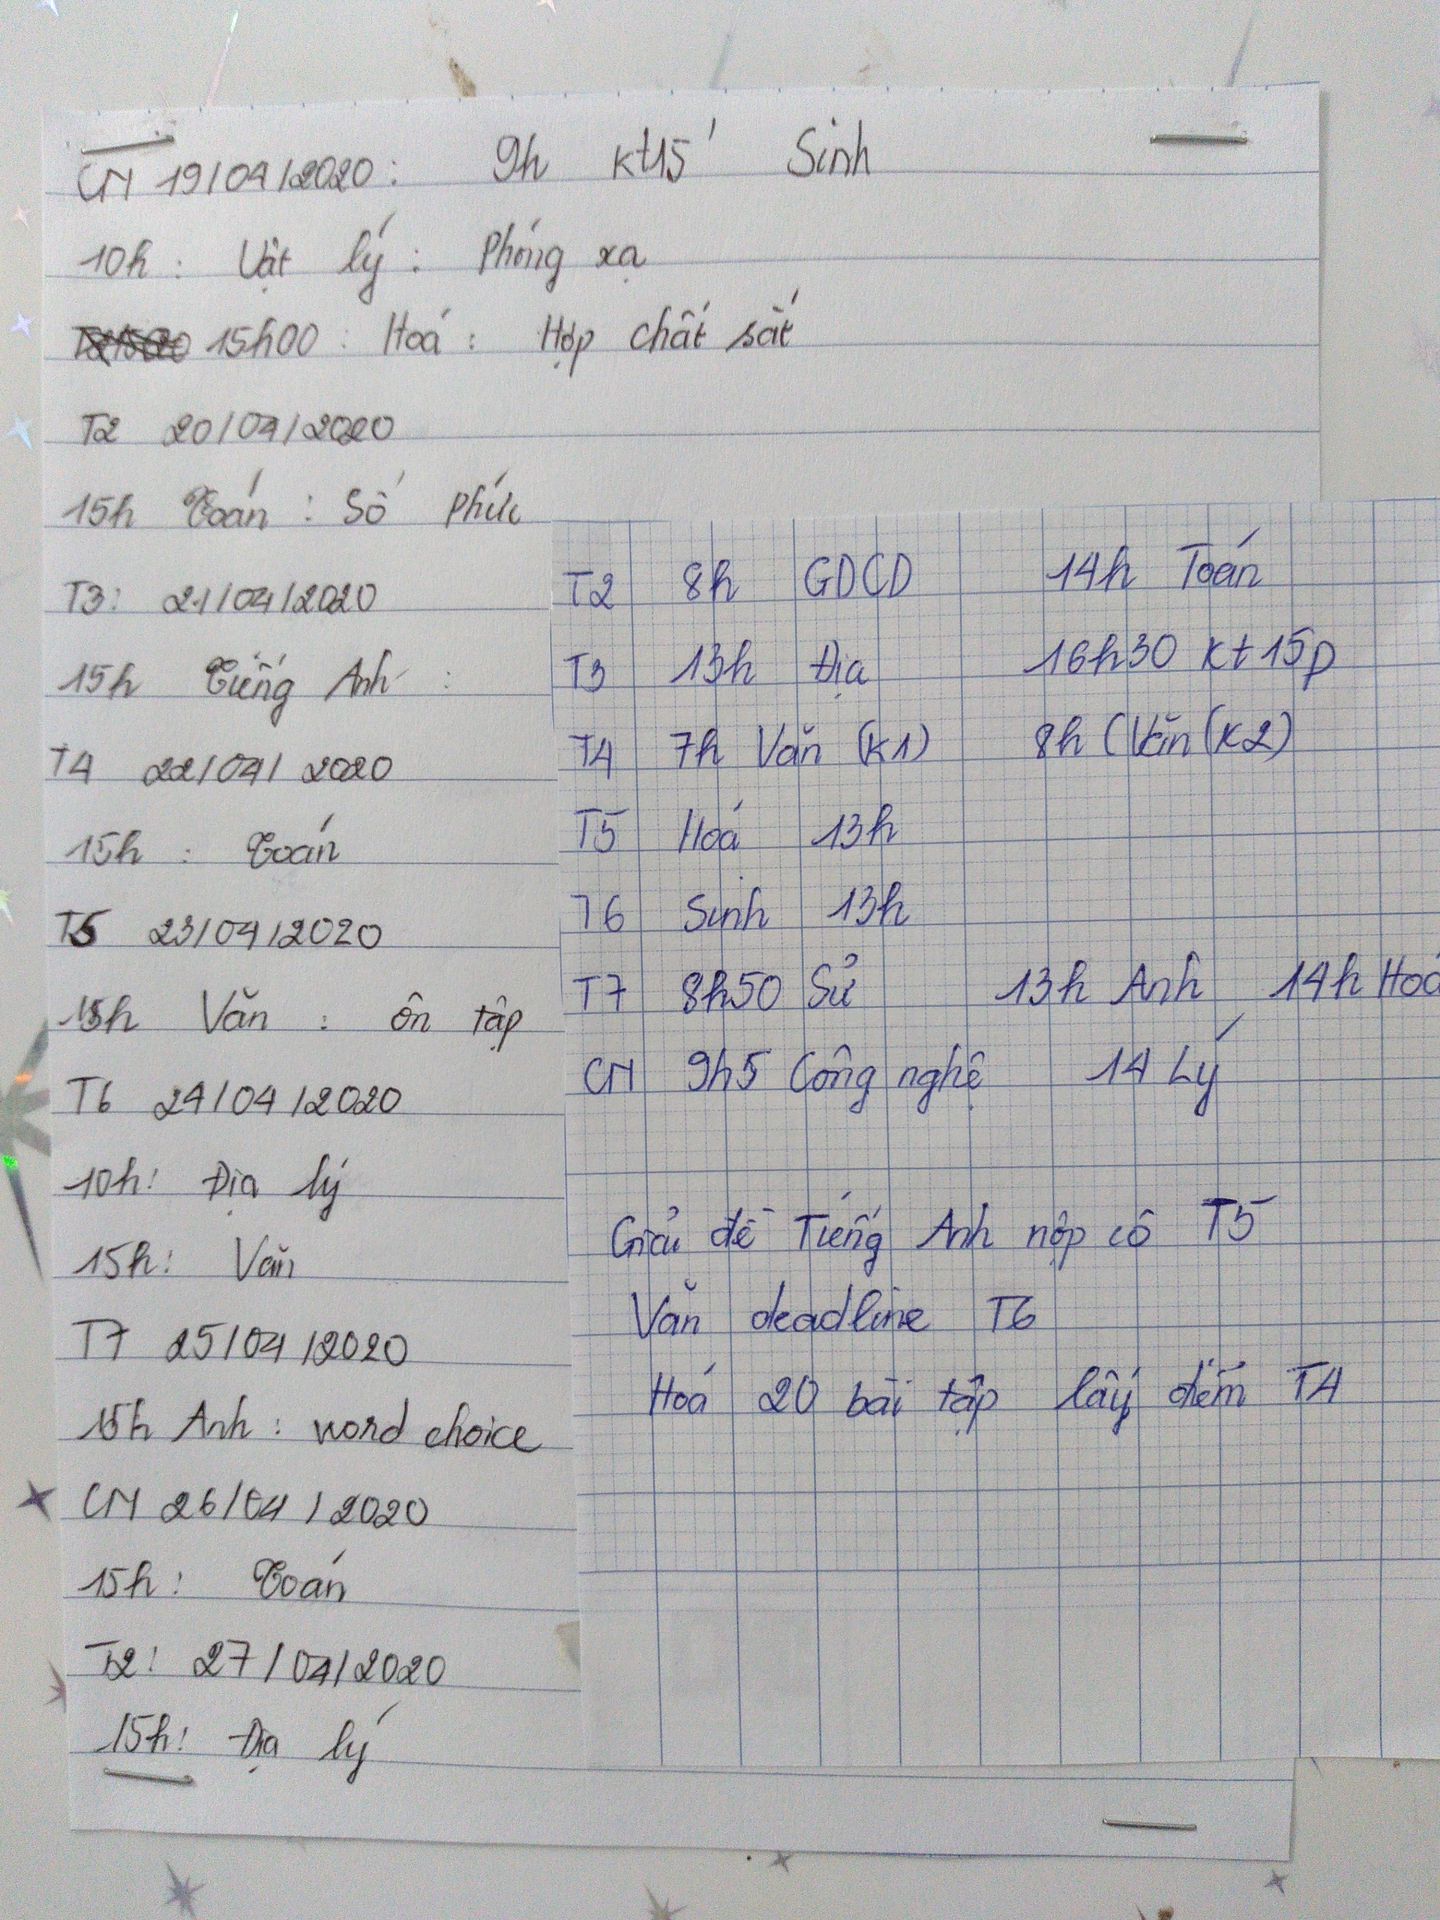 CN 19/04/2020: 9h kt15' Sinh
10h: Vật lý: Phóng xạ
15h00: Hoá: Hợp chất sắt
T2 20/04/2020
15h Toán: Số phức
T3: 21/04/2020
15h Tiếng Anh:
T4 22/04/2020
15h: Toán
T5 23/04/2020
15h Văn: ôn tập
T6 24/04/2020
10h: Địa lý
15h: Văn
T7 25/04/2020
15h Anh: word choice
CN 26/04/2020
15h: Toán
T2: 27/04/2020
15h: Địa lý
T2 8h GDCD 14h Toán
T3 13h Địa 16h30 kt15p
T4 7h Văn (K1) 8h (Văn (K2)
T5 Hoá 13h
T6 Sinh 13h
T7 8h50 Sử 13h Anh 14h Hoá
CN 9h5 Công nghệ 14 Lý
Giải đề Tiếng Anh nộp cô T5
Văn deadline T6
Hoá 20 bài tập lấy điểm T4